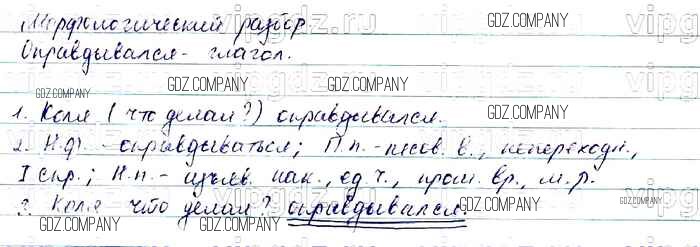 Морфологический разбор.
Оправдывался - глагол.
1. Коля (что делал?) оправдывался.
2. Н.ф. - оправдываться; П.п. - несов. в., непереходн.,
I спр.; Н.п. - изъяв. нак., ед.ч., прош. вр., м.р.
3. Коля что делал? оправдывался.
GDZ.COMPANY
GDZ.COMPANY
GDZ.COMPANY
GDZ.COMPANY
GDZ.COMPANY
GDZ.COMPANY
GDZ.COMPANY
GDZ.COMPANY
GDZ.COMPANY
GDZ.COMPANY